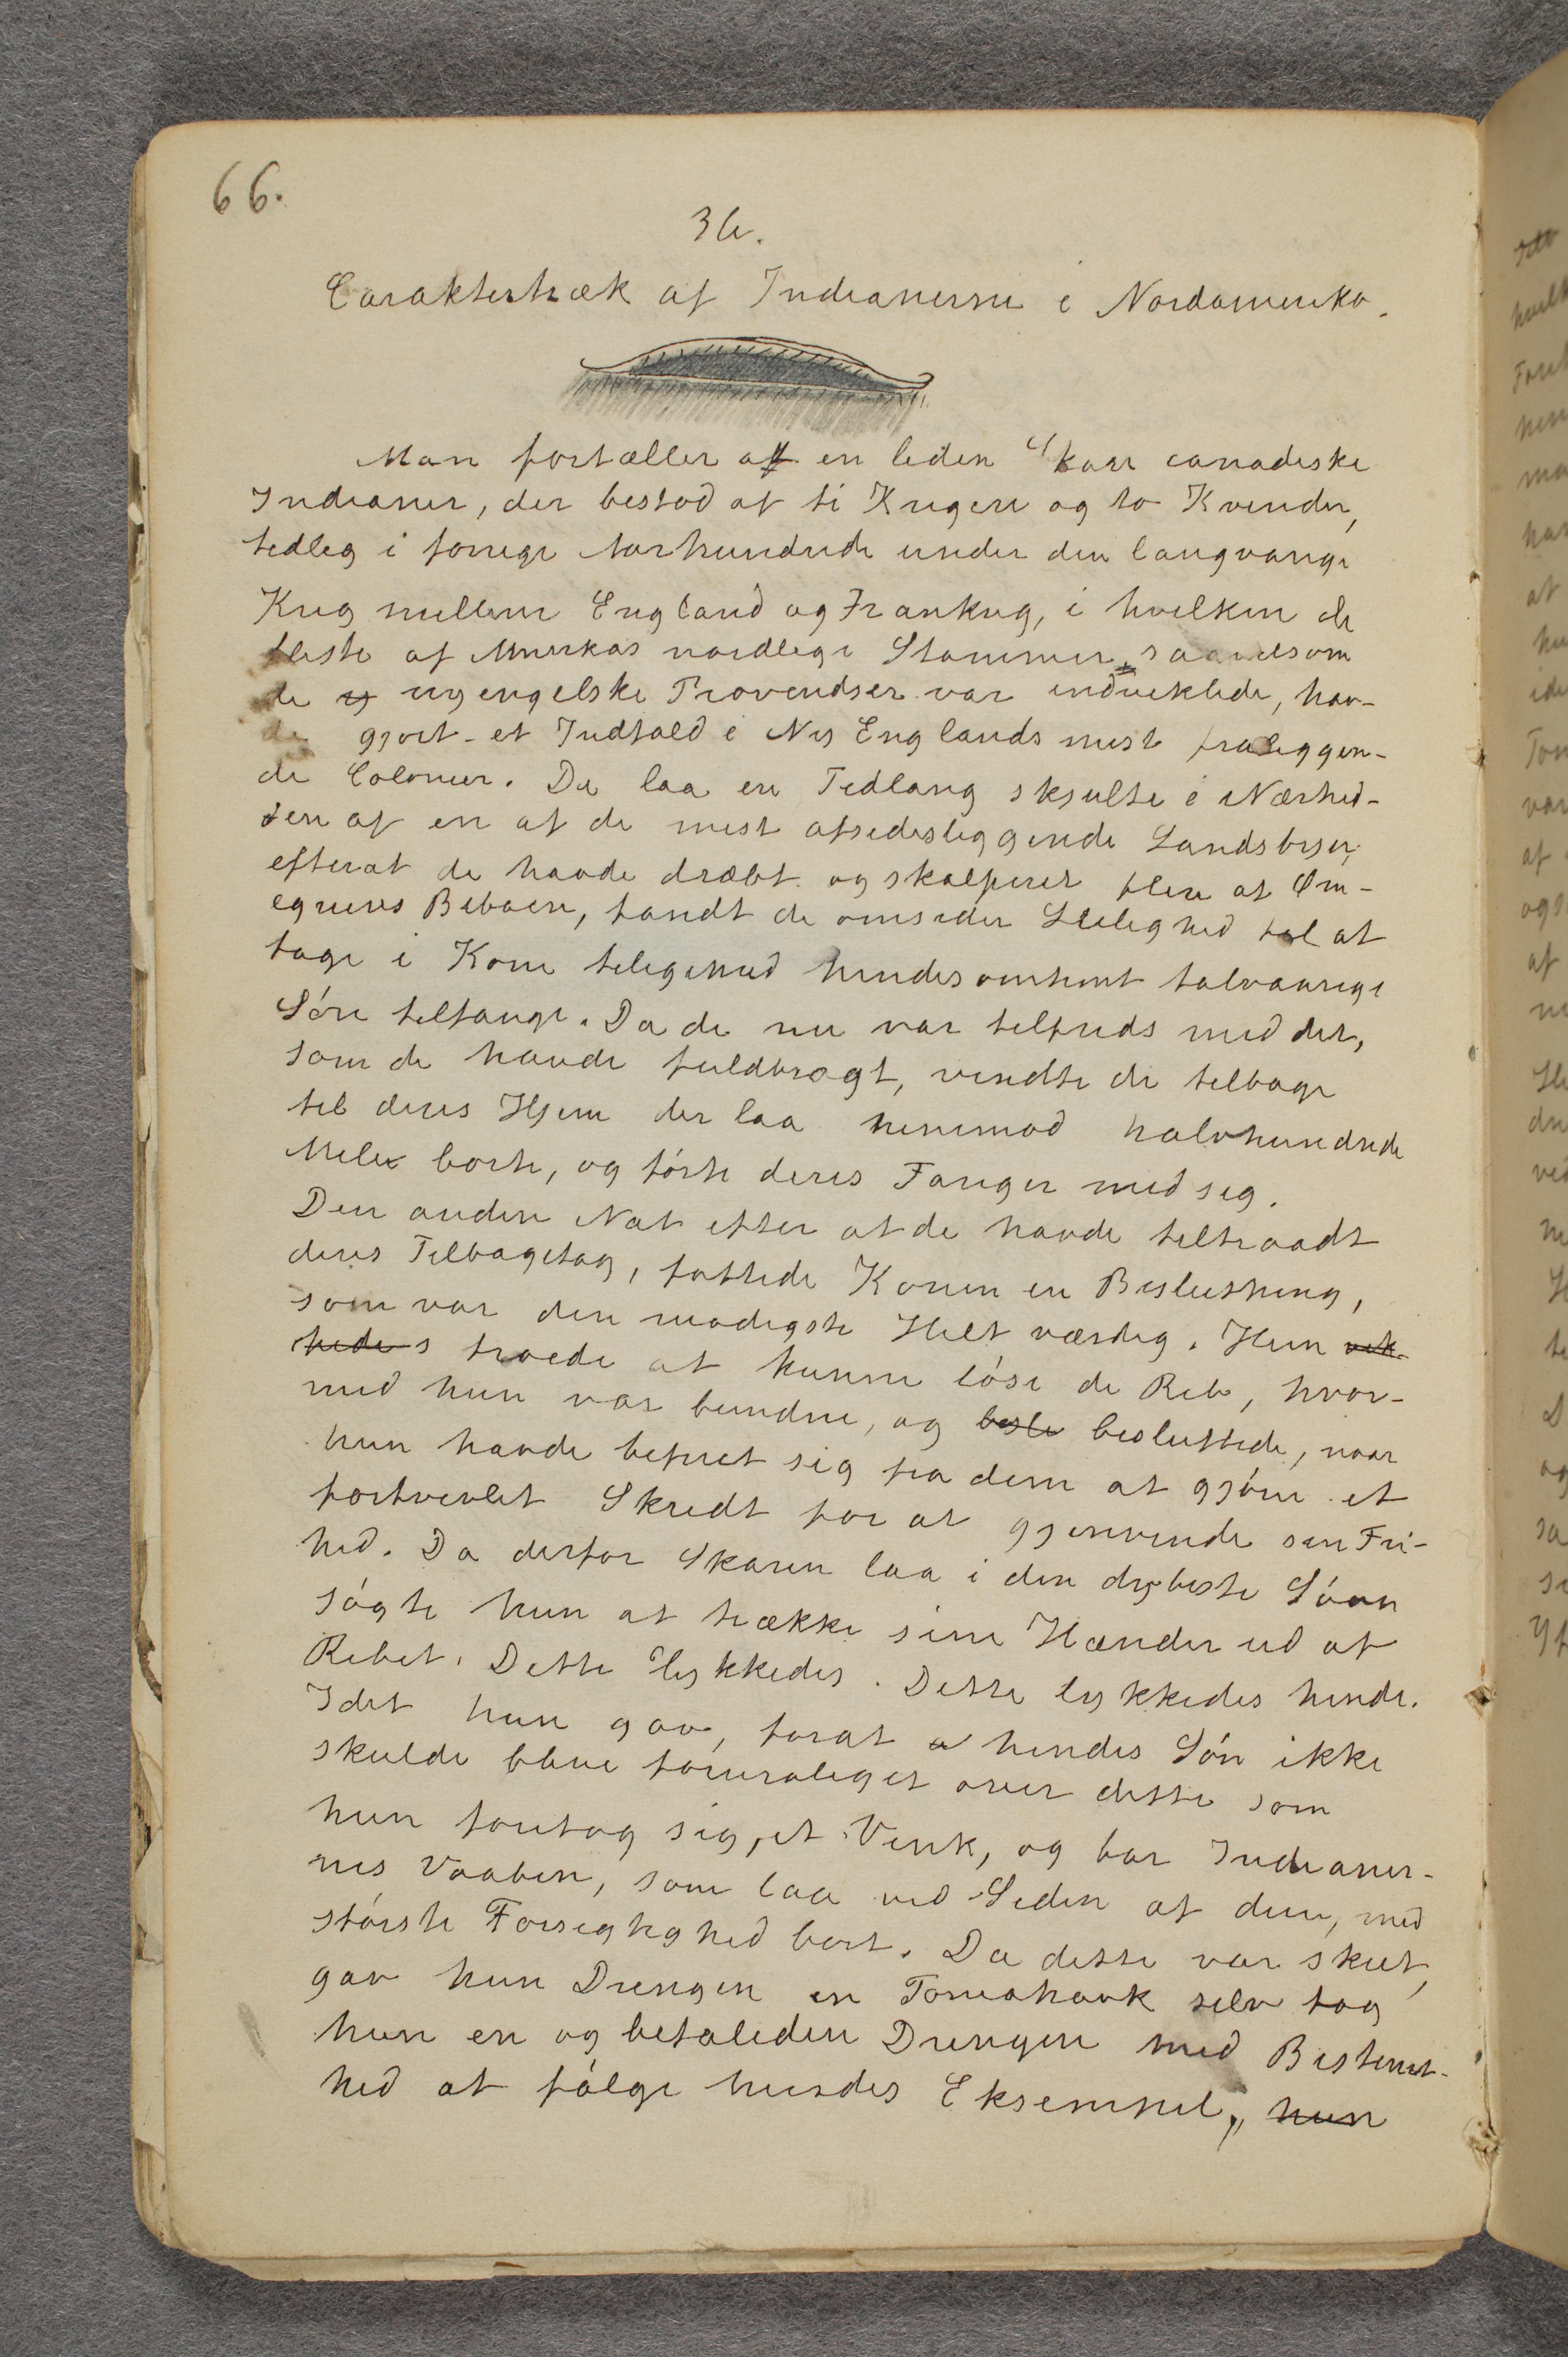 66.
36.
Caraktertræk af Indianerne i Nordamerika.
Man fortæller at en liden Skare canadiske
Indianer, der bestod af ti Krigere og to Kvinder,
tidlig i forrige Aarhundrede under den langvarige
Krig mellem England og Frankrig, i hvilken de
fleste af Amerikas nordlige Stammer, saavelsom
de ny engelske Provendser var indviklede, hav-
de gjort et Indfald i Ny Englands mest fraliggen-
de Colonier. De laa en Tidlang skjulte i Nærhed-
den af en af de mest afsidesliggende Landsbyer,
efterat de havde dræbt og skalperet flere af Om-
egnens Beboere, fandt de omsider Leilighed til at
tage i Kone tilligemed hendes omtrent tolvaarige
Sön tilfange. Da de nu var tilfreds med det,
som de havde fuldbragt, vendte de tilbage
til deres Hjem der laa henimod halvhundrede
Mile borte, og förte deres Fanger med sig.
Den anden Nat efter at de havde tiltraadt
deres Tilbagetog, fattede Konen en Beslutning,
som var den modigste Helt værdig. Hun
troede at kunne löse de Reb, hvor-
med hun var bunden, og besl besluttede, naar
hun havde befriet sig fra dem at gjöre et
fortvivlet Skridt for at gjenvinde sin Fri-
hed. Da derfor Skaren laa i den dybeste Sövn
sögte hun at trække sine Hænder ud af
Rebet. Dette lykkedes. Dette lykkedes hende.
Idet hun gav, forat a hendes Sön ikke
skulde blive foruroliget over dette som
hun foretog sig, et Vink, og bar Indianer-
nes Vaaben, som laa ved Siden af dem, med
störste Forsigtighed bort. Da dette var skeet,
gav hun Drengen en Tomahavk selv tog
hun en og befalede Drengen med Bestemt-
hed at fölge hendes Eksempel, hun